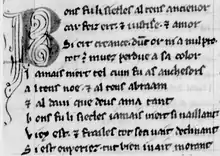 Bons fu li siecles al tens ancienor
car feiz i ert e iustise e amor
Si ert creance dunt or ni a nul pro
tot est muez perdue a sa color
Jamais niert tel cum fu as ancesors
al tens noe e al tens abraam
e al daui que deus ama tant
bons fu li siecles iamais niert si uaillant
Viez est e frailes tot sen uait declinant
Si est tut bien uait morant